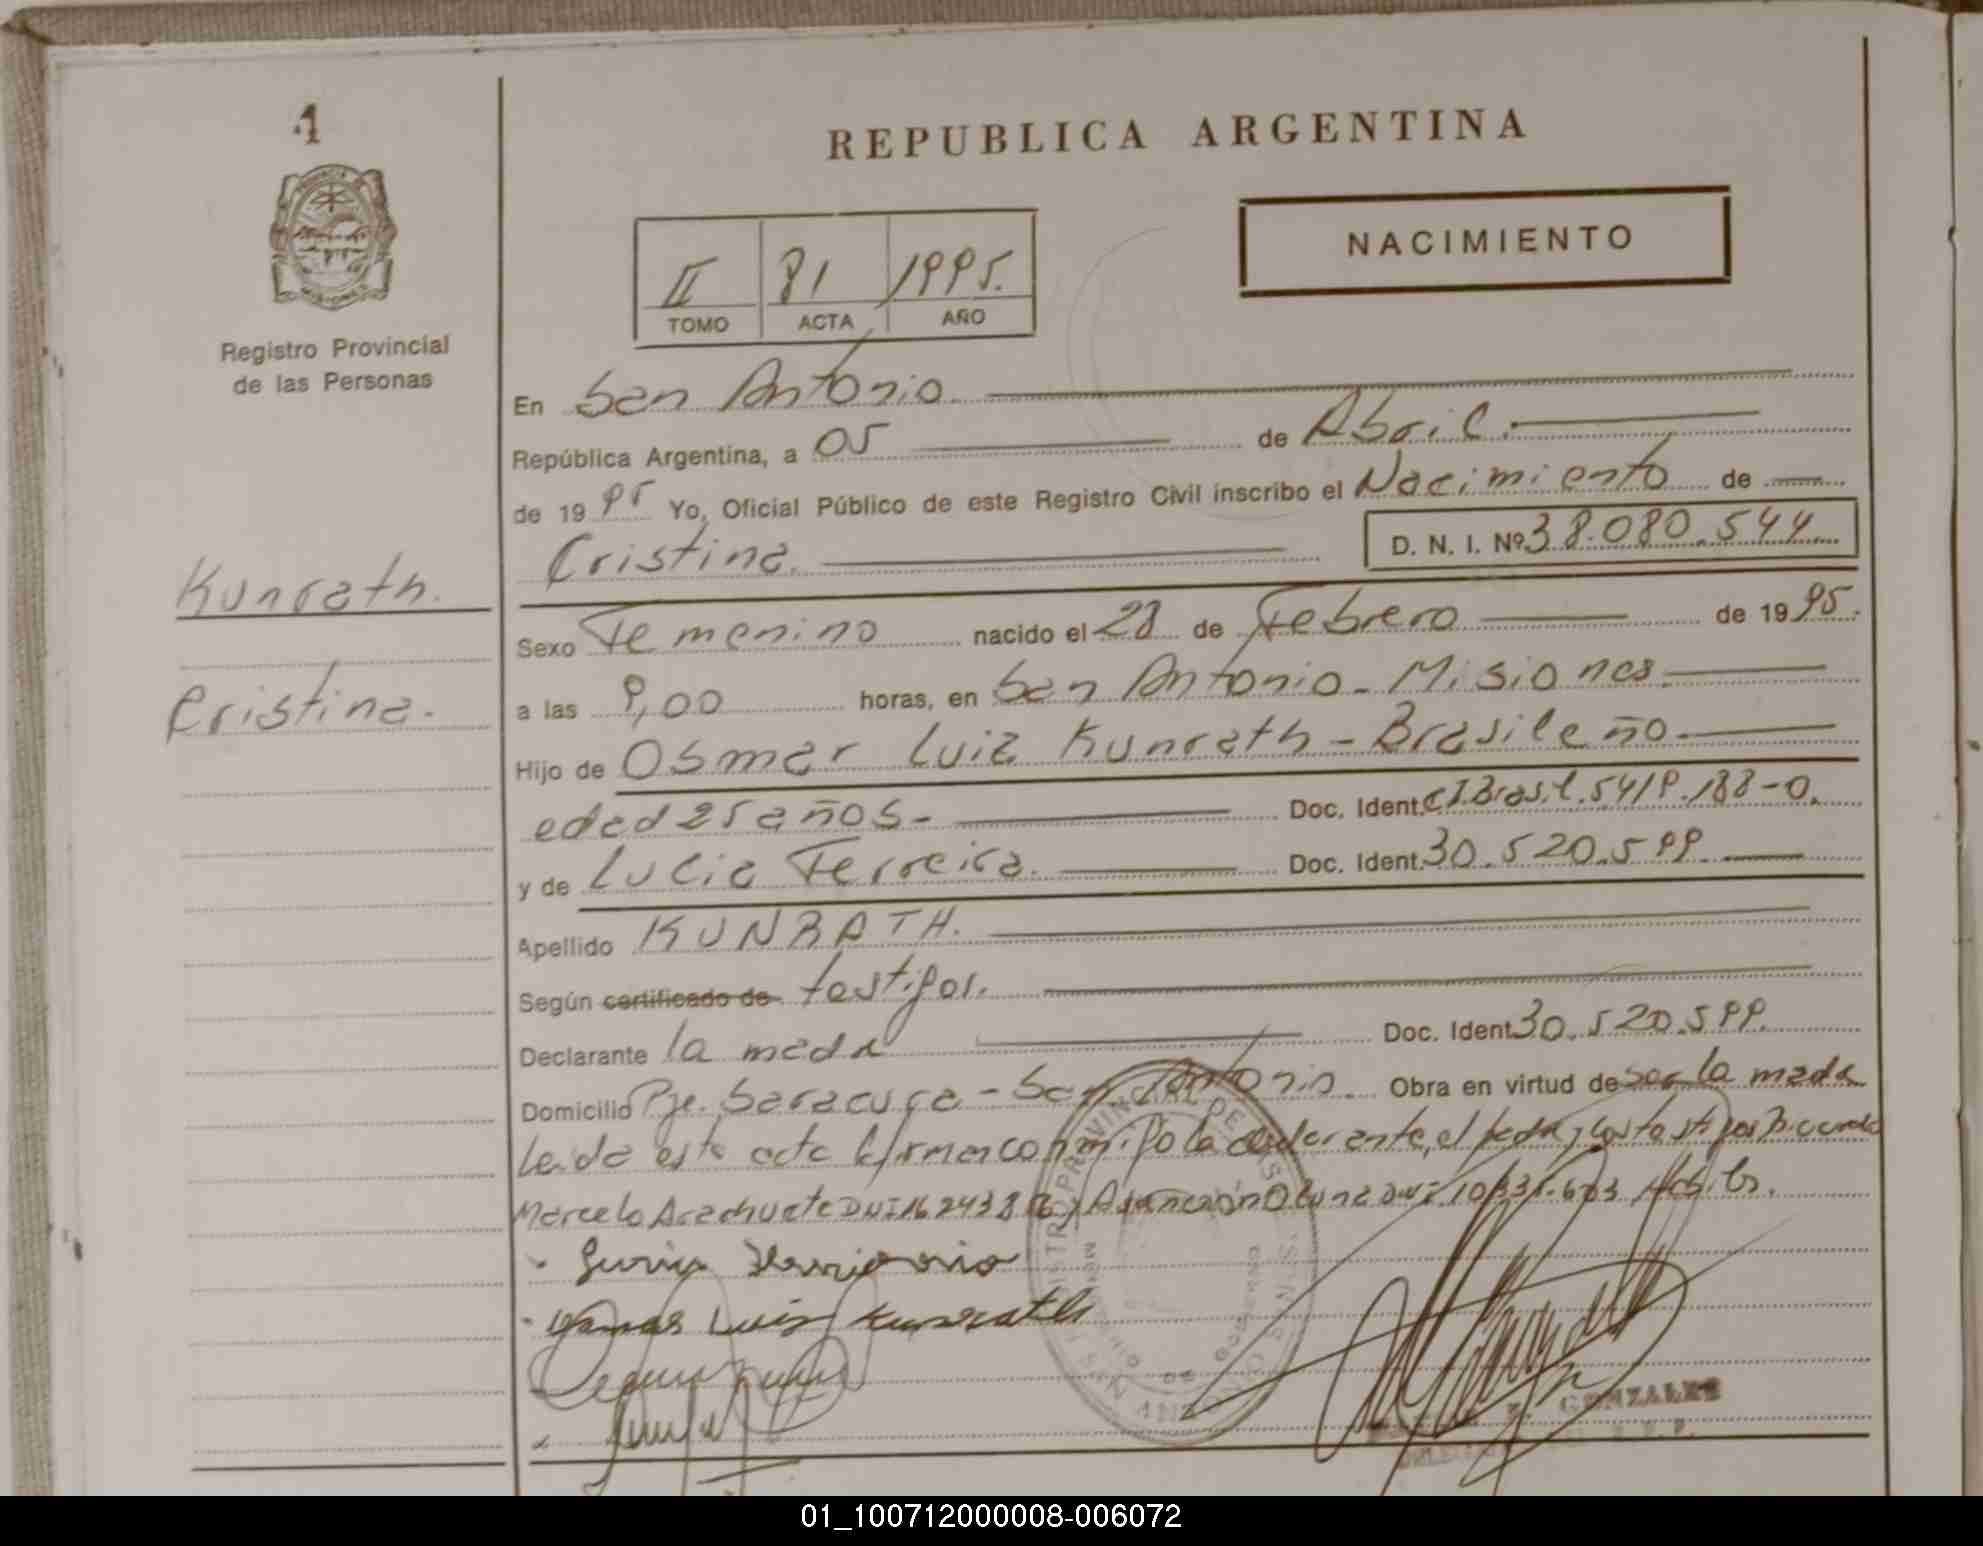 1
REPUBLICA ARGENTINA
NACIMIENTO
II 81 1995.
TOMO ACTA AÑO
Registro Provincial
de las Personas
En San Antonio.
República Argentina, a 05 de Abril.
de 19 95 Yo, Oficial Público de este Registro Civil inscribo el Nacimiento de
Cristina. D. N. I. Nº 38.080.544
Kunrath.
Cristina.
Sexo Femenino nacido el 28 de Febrero de 1995.
a las 9,00 horas, en San Antonio - Misiones.
Hijo de Osmar Luiz Kunrath - Brasileño
edad 25 años. Doc. Ident. CI.Brasil.5419.188-0.
y de Lucia Ferreira. Doc. Ident. 30.520.599
Apellido KUNRATH.
Según certificado de testigos.
Declarante la madre Doc. Ident 30.520.599.
Domicilio Pje. Saracura - San Antonio. Obra en virtud de ser la madre
Leida este acta firman conmigo la declarante, el padre y los testigos
Marcelo DNI Asención DNI
Luis Kunrath
GONZALES
01_100712000008-006072